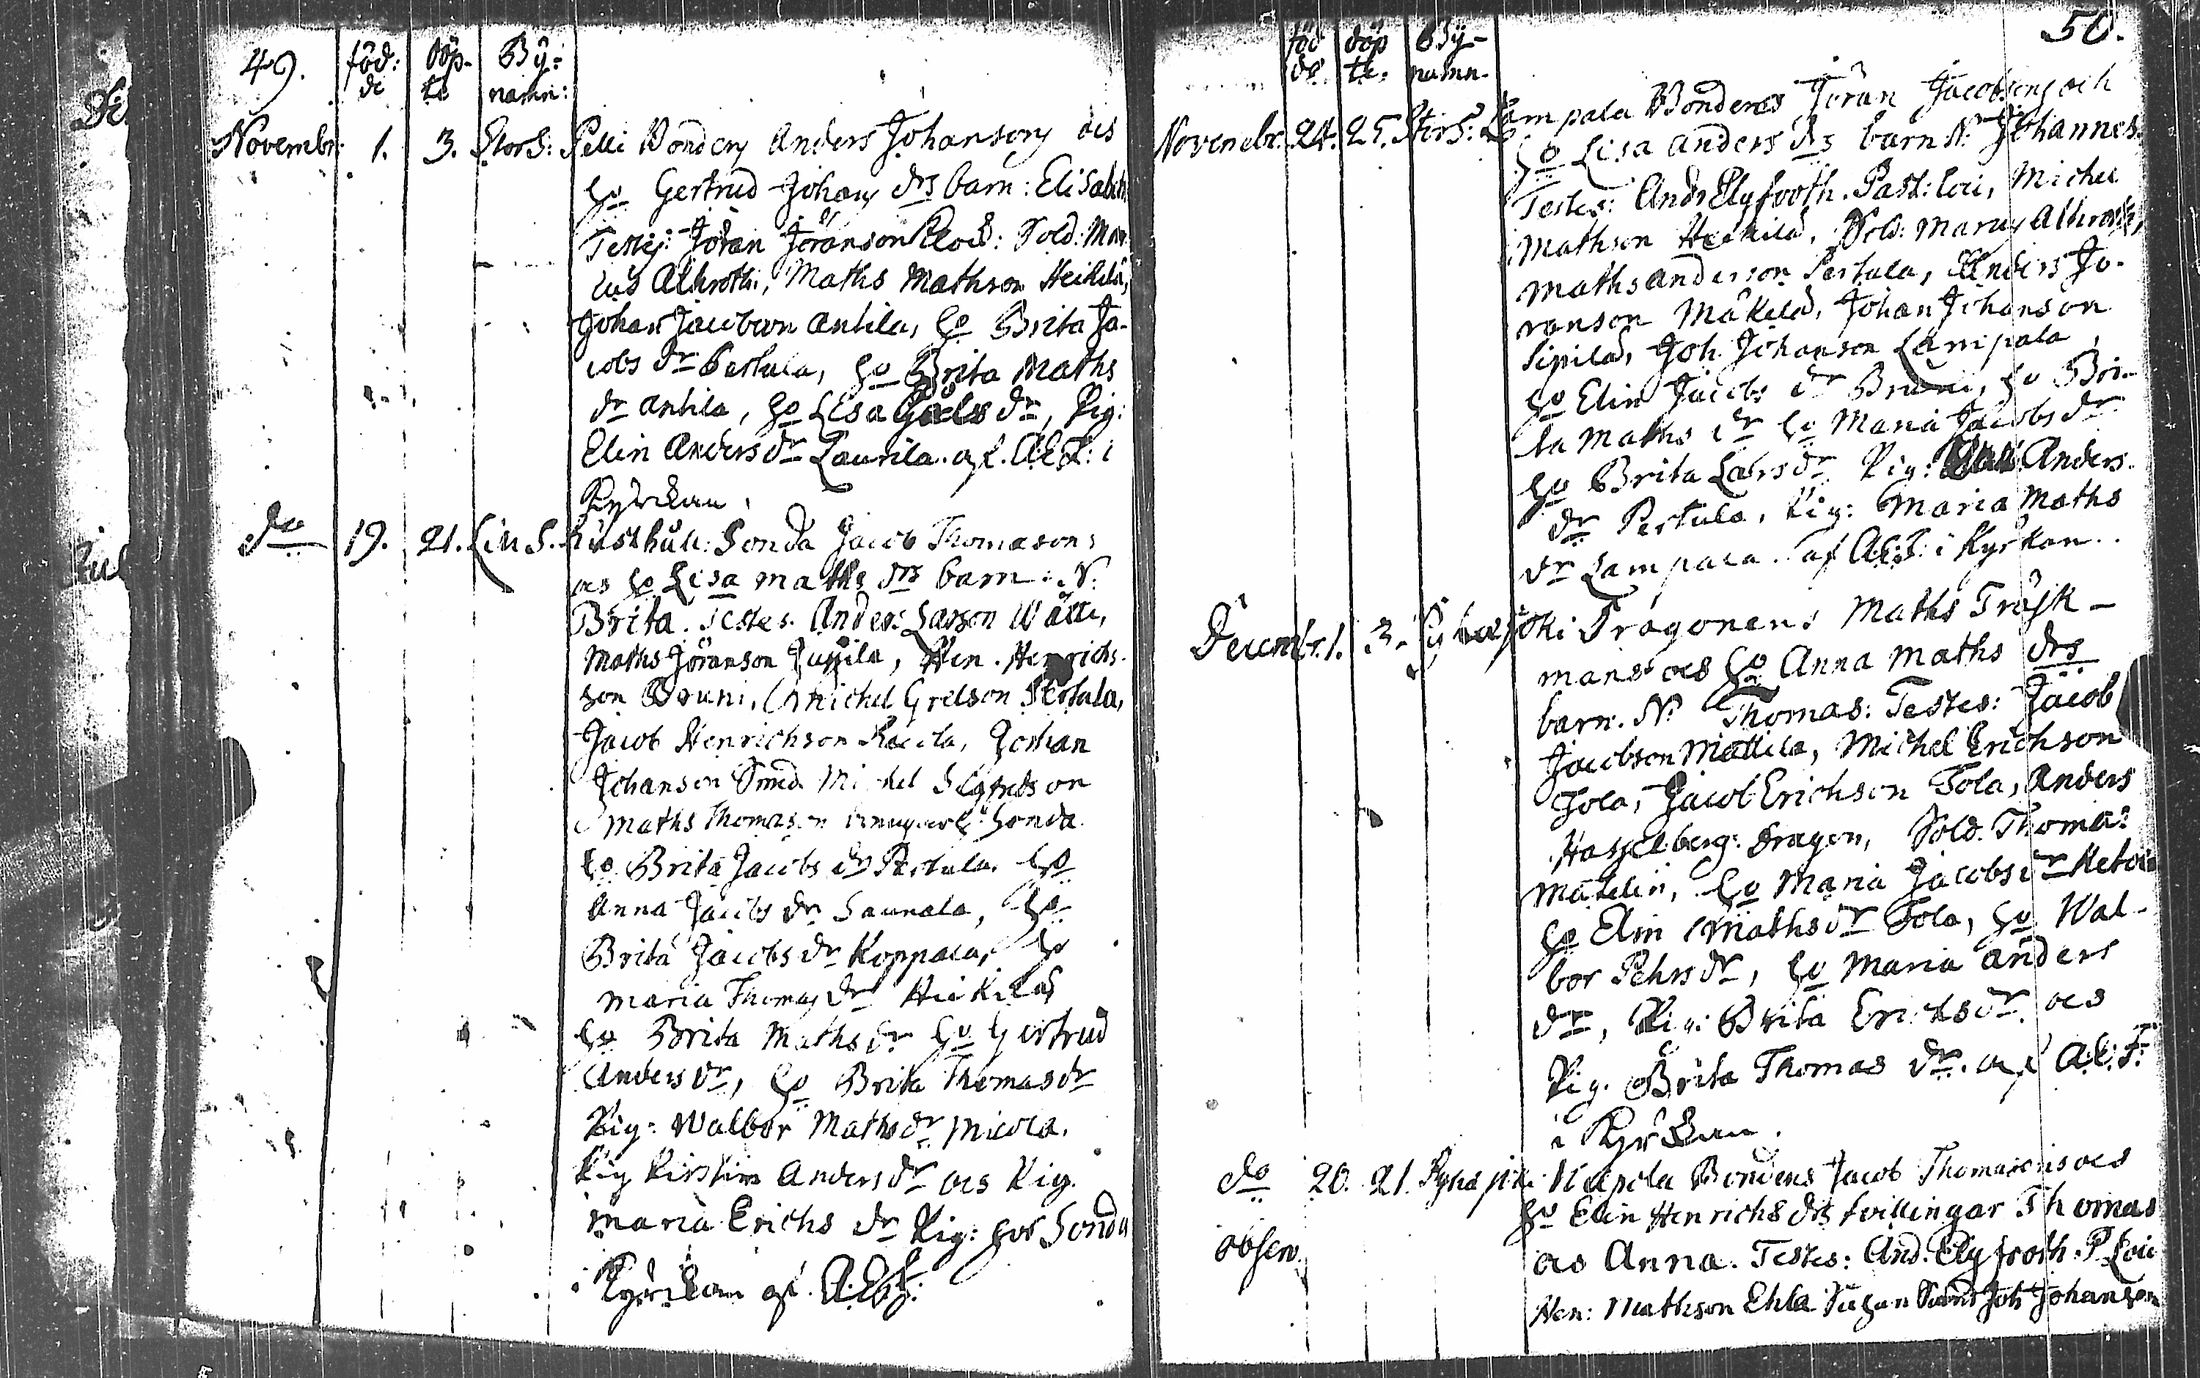 49. föd: döp- By-
de te namn:
Novembr: 1. 3. StorS: Pelli Bondens Anders Johansons ocs
ho Gertrud Johans drs barn: Elisabet
Testes: Jöran Jöranson Klock: Sold: Mar-
cus Alkroth, Maths Mathson Heikilä,
Johan Jacobson Antila, ho Brita Ja-
cobs dr Pertula, ho Brita Maths
dr Antila, ho Lisa dr, Pig:
Elin Anders dr Laurila. af. A:E:F: i
Kyrckan.
do 19. 21. LillS. Rusthåll: Honda Jacob Thomasons
ocs ho Lisa Maths drs barn: N:
Brita. Testes. Anders Larson Wälli,
Maths Jöranson Jussila, Hen. Henrichs-
son Bruni, Michel Grelson Pertula,
Jacob Henrichson Johan
Johanson Smed Michel Sigfredson
Maths Thomason Honda.
ho Brita Jacobs dr Pertula. ho
Anna Jacobs dr Saunala, ho
Brita Jacobs dr Koppala, ho
Maria Thomas dr Heikilä,
ho Brita Maths dr ho Gertrud
Anders dr, ho Brita Thomas dr
Pig: Walbor Maths dr Micola.
Pig Kirstin Anders dr ocs Pig.
Maria Erichs dr Pig: hos Honda
i Kyrckan af. A:E:F:
föd döp By- 50.
de. te. namn.
Novembr. 24. 25. StorS: Lampala Bondens Jöran Jacobsons och
ho Lisa Anders drs barn N: Johannes.
Testes: And: Elgfooth. Past: loci, Michel
Mathson Heikilä, Sold: Marcus Alkroth,
Maths Anderson Pertula, Anders Jö-
ranson Mäkelä, Johan Johanson
Sipilä, Joh. Johanson Lampala,
ho Elin Jacobs dr Bruni, ho Bri-
ta Maths dr ho Maria Jacobs dr
ho Brita Lars dr Pig: Anders
dr Pertula, Pig: Maria Maths
dr Lampala. af A:E:F: i Kyrkan.
Decembr. 1. 3. Pyhäjoki Dragonens Maths Tröjk-
mans ocs ho Anna Maths drs
barn. N: Thomas: Testes: Jacob
Jacobson Mattila, Michel Erichson
Tola, Jacob Erichson Tola, Anders
Hasselberg: Dragon, Sold. Thomas
Matelin, ho Maria Jacobs dr
ho Elin Maths dr Tola, ho Wal-
bor Pehrs dr, ho Maria Anders
dr, Pig: Brita Erichs dr. ocs
Pig. Brita Thomas dr. af A:E:F:
i Kyrckan.
do 20. 21. Pyhäjoki Bondens Jacob Thomasons ocs
ho Elin Henrichs drs tvillingar Thomas
observ. ocs Anna. Testes: And. Elgfooth. P. Loci
Hen: Mathson Ehla Smed Joh Johanson